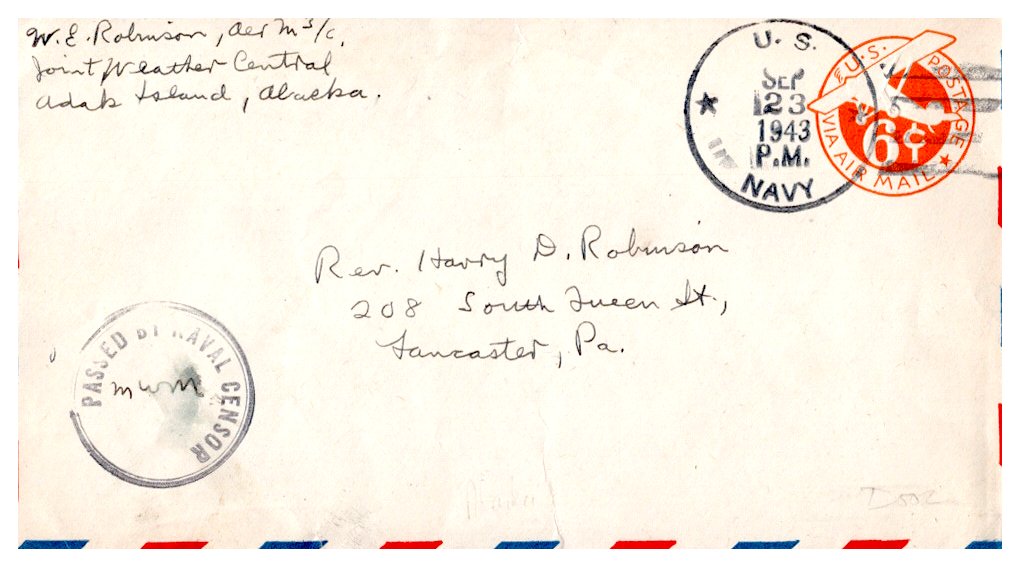 W. E. Robinson, Aer M 3/c,
Joint Weather Central
Adak Island, Alaska.
U. S.
SEP
23
1943
P.M.
NAVY
U.S. POSTAGE
6¢
VIA AIR MAIL
Rev. Harry D. Robinson
208 South Queen St.,
Lancaster, Pa.
PASSED BY NAVAL CENSOR
mwm